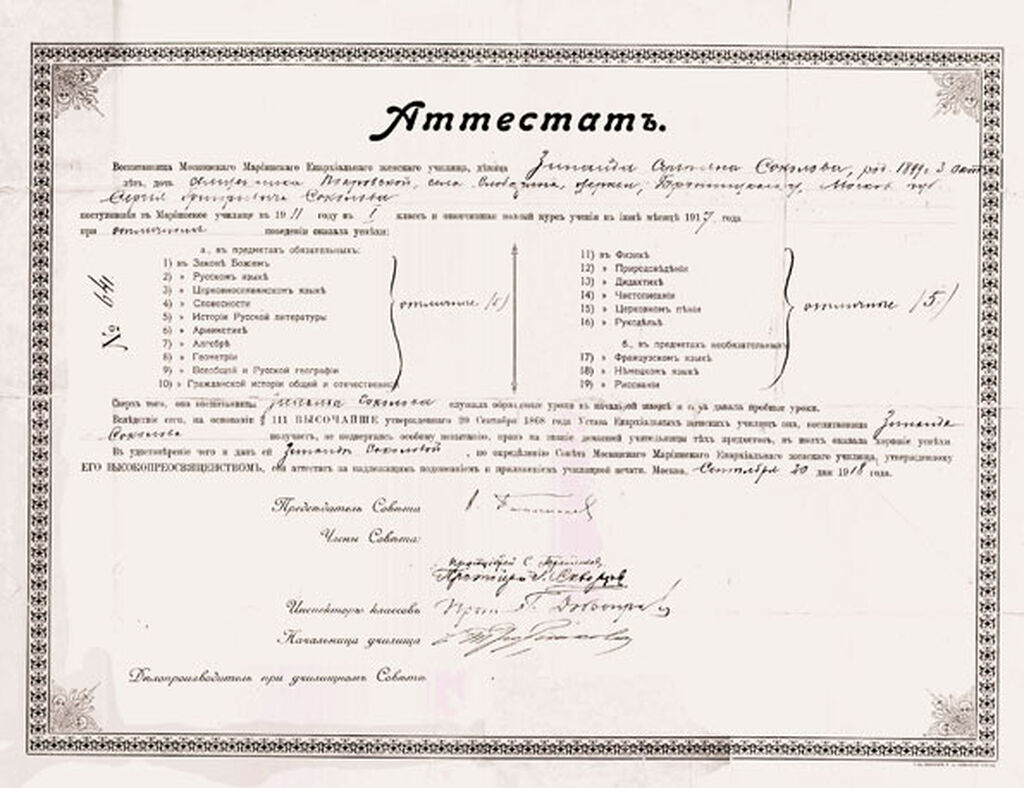 Аттестатъ.
Воспитанница Московскаго Маріинскаго Епархіальнаго женскаго училища, дѣвица Зинаида Соколова, род. 3
дочь священника Покровской, села церкви, Бронницкаго у. Москов. губ.
Сергія Григорьевича Соколова
поступившая въ Маріинское училище въ 1911 году въ I классъ и окончившая полный курсъ ученія въ іюнѣ мѣсяцѣ 1917 года
при отличномъ поведеніи оказала успѣхи:
№ 64
а., въ предметахъ обязательныхъ:
1) въ Законѣ Божіемъ
2) » Русскомъ языкѣ
3) » Церковнославянскомъ языкѣ
4) » Словесности
5) » Исторіи Русской литературы
6) » Ариѳметикѣ
7) » Алгебрѣ
8) » Геометріи
9) » Всеобщей и Русской географіи
10) » Гражданской исторіи общей и отечественной
отличные (5)
11) въ Физикѣ
12) » Природовѣдѣніи
13) » Дидактикѣ
14) » Чистописаніи
15) » Церковномъ пѣніи
16) » Рукодѣльѣ
в., въ предметахъ необязательныхъ
17) » Французскомъ языкѣ
18) » Нѣмецкомъ языкѣ
19) » Рисованіи
отличные (5)
Сверхъ того, она воспитанница Зинаида Соколова слушала образцовые уроки въ начальной школѣ и сама давала пробные уроки.
Вслѣдствіе сего, на основаніи § 111 ВЫСОЧАЙШЕ утвержденнаго 20 Сентября 1868 года Устава Епархіальныхъ женскихъ училищъ она, воспитанница Зинаида
Соколова получаетъ, не подвергаясь особому испытанію, право на званіе домашней учительницы тѣхъ предметовъ, въ коихъ оказала хорошіе успѣхи
Въ удостовѣреніе чего и данъ ей Зинаидѣ Соколовой, по опредѣленію Совѣта Московскаго Маріинскаго Епархіальнаго женскаго училища, утвержденному
ЕГО ВЫСОКОПРЕОСВЯЩЕНСТВОМЪ, сей аттестатъ за надлежащимъ подписаніемъ и приложеніемъ училищной печати. Москва, Сентября 20 дня 1918 года.
Предсѣдатель Совѣта
Члены Совѣта:
Протоіерей С.
Протоіерей Скворцов
Инспекторъ классовъ Прот.
Начальница училища
Дѣлопроизводитель при училищномъ Совѣтѣ